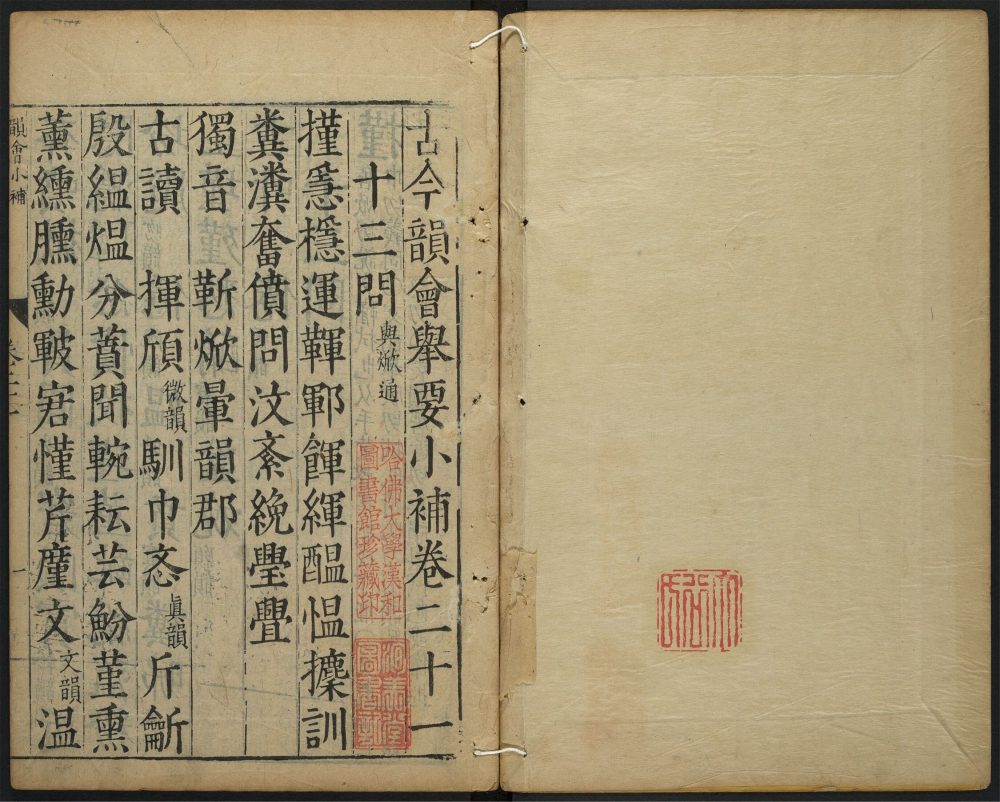 古今韻會舉要小補卷二十一
十三問與焮通
㨷㥯櫽運鞰鄆餫緷醞愠攈訓
糞瀵奮僨問汶紊絻璺亹
獨音 靳焮暈韻郡
古讀 揮頎微韻馴巾忞眞韻斤齗
殷縕熅分蕡聞輓耘芸魵堇熏
薰纁臐勳皸宭慬芹㢙文文韻溫
韻會小補
一
哈佛大學漢和
圖書館珍藏印